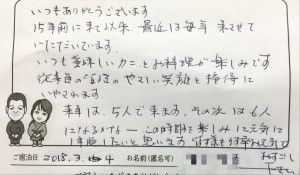 いつもありがとうございます
15年前に来て以来、最近は毎年 来させて
いただいています。
いつも美味しいカニとお料理が楽しみです
従業員の皆様のやさしい笑顔と接待に
いやされます。
来年は、5人で来ます。その次は6人
になるかなー この時期を楽しみに元気に
1年過したいと思います
ご宿泊日 2018.3.4
お名前(匿名可)